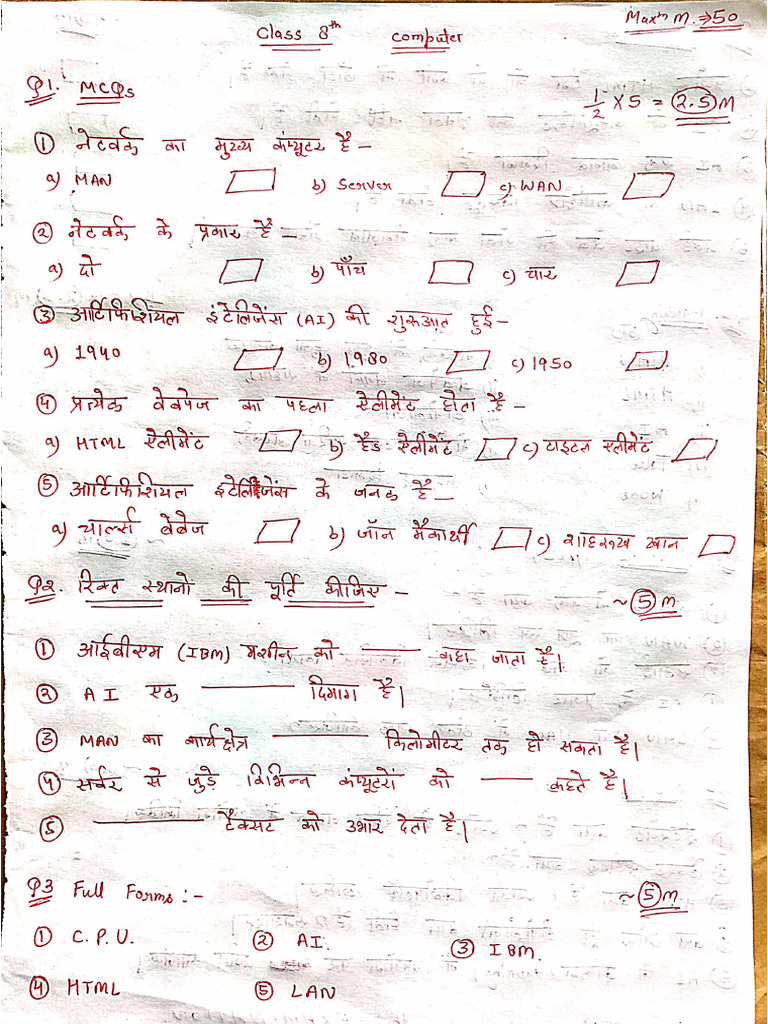 Class 8th computer Maxm M. ⇒ 50
Q1. MCQs 1/2 × 5 = 2.5 M
① नेटवर्क का मुख्य कंप्यूटर है –
a) MAN b) Server c) WAN
② नेटवर्क के प्रकार है –
a) दो b) पाँच c) चार
③ आर्टिफिशियल इंटेलिजेंस (AI) की शुरूआत हुई –
a) 1940 b) 1980 c) 1950
④ प्रत्येक वेबपेज का पहला ऐलीमेंट होता है –
a) HTML ऐलीमेंट b) हैड ऐलीमेंट c) टाइटल एलीमेंट
⑤ आर्टिफिशियल इंटेलिजेंस के जनक है –
a) चार्ल्स बेबेज b) जॉन मैकार्थी c) शाहरूख खान
Q2. रिक्त स्थानो की पूर्ति कीजिए – ~ 5 M
① आईबीएम (IBM) मशीन को ——— कहा जाता है।
② AI एक ——— दिमाग है।
③ MAN का कार्यक्षेत्र ——— किलोमीटर तक हो सकता है।
④ सर्वर से जुड़े विभिन्न कंप्यूटरों को ——— कहते है।
⑤ ——— टैक्सट को उभार देता है।
Q3 Full Forms :- ~ 5 M
① C.P.U. ② AI. ③ IBM.
④ HTML ⑤ LAN